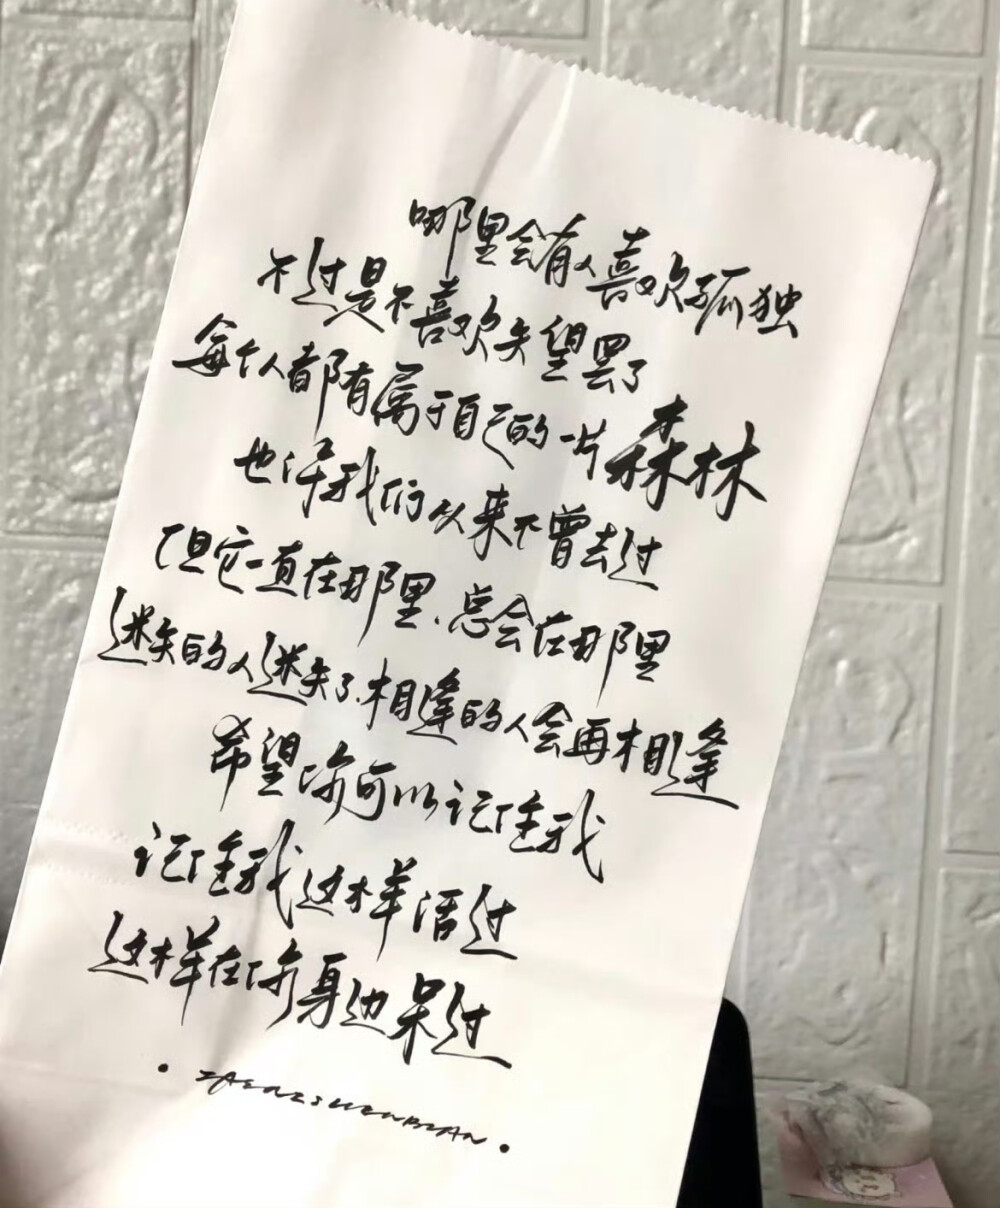 哪里会有人喜欢孤独
不过是不喜欢失望罢了
每个人都有属于自己的一片森林
也许我们从来不曾去过
但它一直在那里、总会在那里
迷失的人迷失了、相逢的人会再相逢
希望你可以记住我
记住我这样活过
这样在你身边呆过